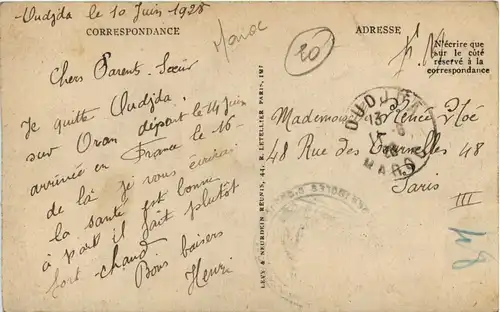 Oudjda le 10 Juin 1928
CORRESPONDANCE
Maroc
20
ADRESSE
F. M
N'écrire que
sur le côté
réservé à la
correspondance
Chers Parents. Sœur
Je quitte Oudjda
sur Oran départ le 14 Juin
arrivée en France le 16-
de là je vous écrirai
la santé est bonne
à part il fait plutôt
fort chaud
Bons baisers
Henri
LEVY & NEURDEIN RÉUNIS, 44, R. LETELLIER PARIS, IMP
OUDJDA
MAROC
Mademoiselle Renée Noé
48 Rue des Tournelles 48
Paris
III